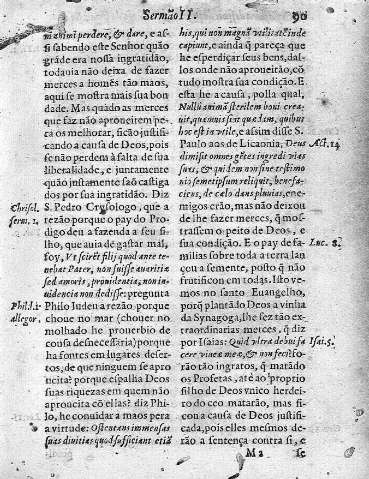 Sermão II. 90
m animi perdere, & dare, e as-
si sabendo este Senhor quaõ
gráde era nossa ingratidão,
todauia não deixa de fazer
merces a homẽs tão maos,
aqui se mostra mais sua bon
dade. Mas quado as merces
que faz não aproueitem pe-
ra os melhorar, ficão justifi-
cando a causa de Deos, pois
se não perdem à falta de sua
liberalidade, e juntamente
quão justamente saõ castiga
dos por sua ingratidão. Diz
Chrisol. S. Pedro Crysologo, que a
serm. 2. rezaõ porque o pay do Pro-
digo deu a fazenda a seu fi-
lho, que auia de gastar mal,
foy, Vt sciret filij quod ante te-
nebat Pater, non fuisse auaritia
sed amoris, prouidentia, non in-
uidencia non dedisse: pregunta
Phil.l.1. Philo Iudeu a rezão. porque
allegor. choue no mar (chouer no
molhado he prouerbio de
cousa desnecessaria) porque
ha fontes em lugares deser-
tos, de que ninguem se apro-
ueita? porque espalha Deos
suas riquezas em quem não
aproueita cõ ellas? diz Phi-
lo, he conuidar a maos pera
a virtude: Ostentans immensas
suas diuitias quod sufficiant etiã
his, qui non magnã vtilitatẽ inde
capiunt, e ainda q̃ pareça que
he esperdiçar seus bens, dal-
los onde não aproueitão, cõ
tudo mostra sua condição. E
esta he a causa, polla qual,
Nullũ animã sterilem boni crea-
uit, quamuis sint quædam, quibus
hoc est in vile, e assim disse S.
Paulo aos de Licaonia, Deus Act. 14
dimisit omnes gẽtes ingredi vias
suas, & quidem non sine testimo
nio semetipsum reliquit, benefa-
ciens, de cælo dans pluuias, ene-
migos erão, mas não deixou
de lhe fazer merces, q̃ mos-
trassem o peito de Deos, e
sua condição. E o pay de fa- Luc. 8.
milias sobre toda a terra lan
çou a semente, posto q̃ não
frutificou em todas. Isto ve-
mos no santo Euangelho,
porq̃ plantãdo Deos a vinha
da Synagoga, lhe fez tão ex-
traordinarias merces, q̃ diz
por Isaias: Quid vltra debui fa Isai. 5.
cere vineæ meæ, & non feci? fo-
rão tão ingratos, q̃ matãdo
os Profetas, até ao proprio
filho de Deos vnico herdei-
ro do ceo matarão, mas fi-
cou a causa de Deos justifi-
cada, pois elles mesmos de-
rão a sentença contra si, e
M 2 se